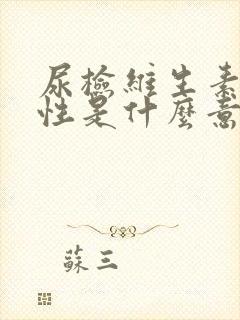 尿檢維生素
性是什麼意
蘇三